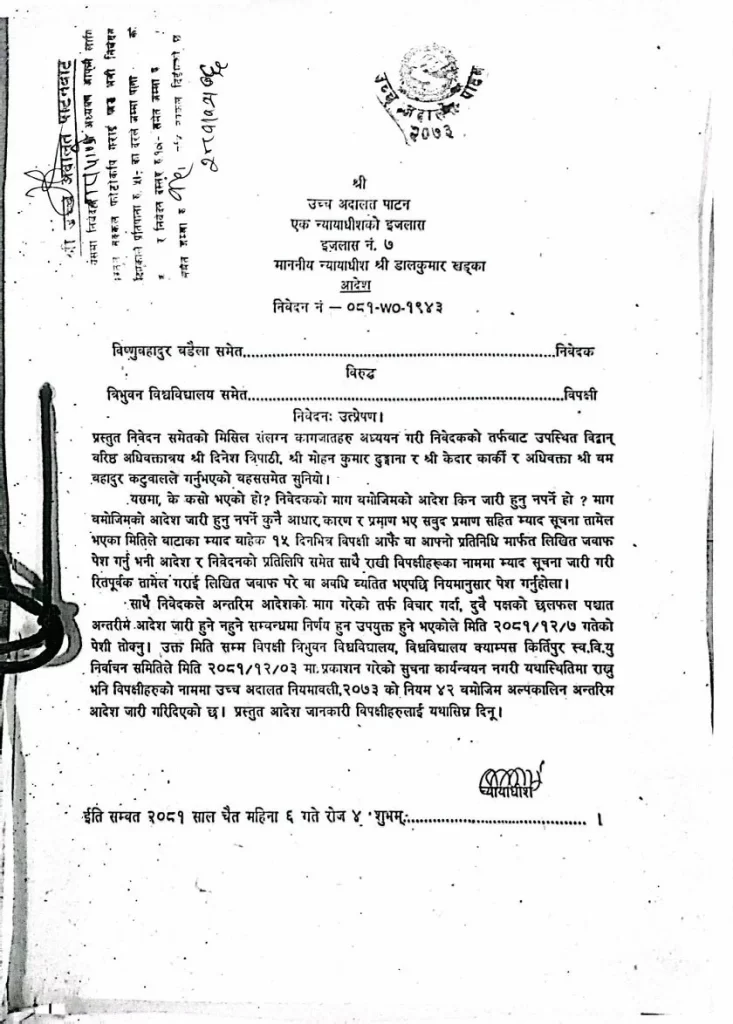 उच्च अदालत पाटन
२०७३
श्री उच्च अदालत पाटनबाट
श्री
उच्च अदालत पाटन
एक न्यायाधीशको इजलास
इजलास नं. ७
माननीय न्यायाधीश श्री डालकुमार खड्का
आदेश
निवेदन नं – ०८१-WO-१९४३
विष्णुबहादुर बडैला समेत..........निवेदक
विरुद्ध
त्रिभुवन विश्वविद्यालय समेत..........विपक्षी
निवेदनः उत्प्रेषण।
प्रस्तुत निवेदन समेतको मिसिल संलग्न कागजातहरु अध्ययन गरी निवेदकको तर्फबाट उपस्थित विद्वान्
वरिष्ठ अधिवक्तात्रय श्री दिनेश त्रिपाठी, श्री मोहन कुमार दुङ्गाना र श्री केदार कार्की र अधिवक्ता श्री बम
बहादुर कटुवालले गर्नुभएको बहससमेत सुनियो।
यसमा, के कसो भएको हो? निवेदकको माग बमोजिमको आदेश किन जारी हुनु नपर्ने हो ? माग
बमोजिमको आदेश जारी हुनु नपर्ने कुनै आधार,कारण र प्रमाण भए सवुद प्रमाण सहित म्याद सूचना तामेल
भएका मितिले बाटाका म्याद बाहेक १५ दिनभित्र विपक्षी आफै वा आफ्नो प्रतिनिधि मार्फत लिखित जवाफ
पेश गर्नु भनी आदेश र निवेदनको प्रतिलिपि समेत साथै राखी विपक्षीहरूका नाममा म्याद सूचना जारी गरी
रितपूर्वक तामेल गराई लिखित जवाफ परे वा अवधि व्यतित भएपछि नियमानुसार पेश गर्नुहोला।
साथै निवेदकले अन्तरिम आदेशको माग गरेको तर्फ विचार गर्दा, दुवै पक्षको छलफल पश्चात
अन्तरीम आदेश जारी हुने नहुने सम्बन्धमा निर्णय हुन उपयुक्त हुने भएकोले मिति २०८१/१२/७ गतेको
पेशी तोक्नु। उक्त मिति सम्म विपक्षी त्रिभुवन विश्वविद्यालय, विश्वविद्यालय क्याम्पस किर्तिपुर स्व.वि.यु
निर्वाचन समितिले मिति २०८१/१२/०३ मा प्रकाशन गरेको सुचना कार्यन्वयन नगरी यथास्थितिमा राख्नु
भनि विपक्षीहरुको नाममा उच्च अदालत नियमावली,२०७३ को नियम ४२ बमोजिम अल्पकालिन अन्तरिम
आदेश जारी गरिदिएको छ। प्रस्तुत आदेश जानकारी विपक्षीहरुलाई यथासिघ्र दिनू।
न्यायाधीश
ईति सम्बत २०८१ साल चैत महिना ६ गते रोज ४ शुभम्..........।